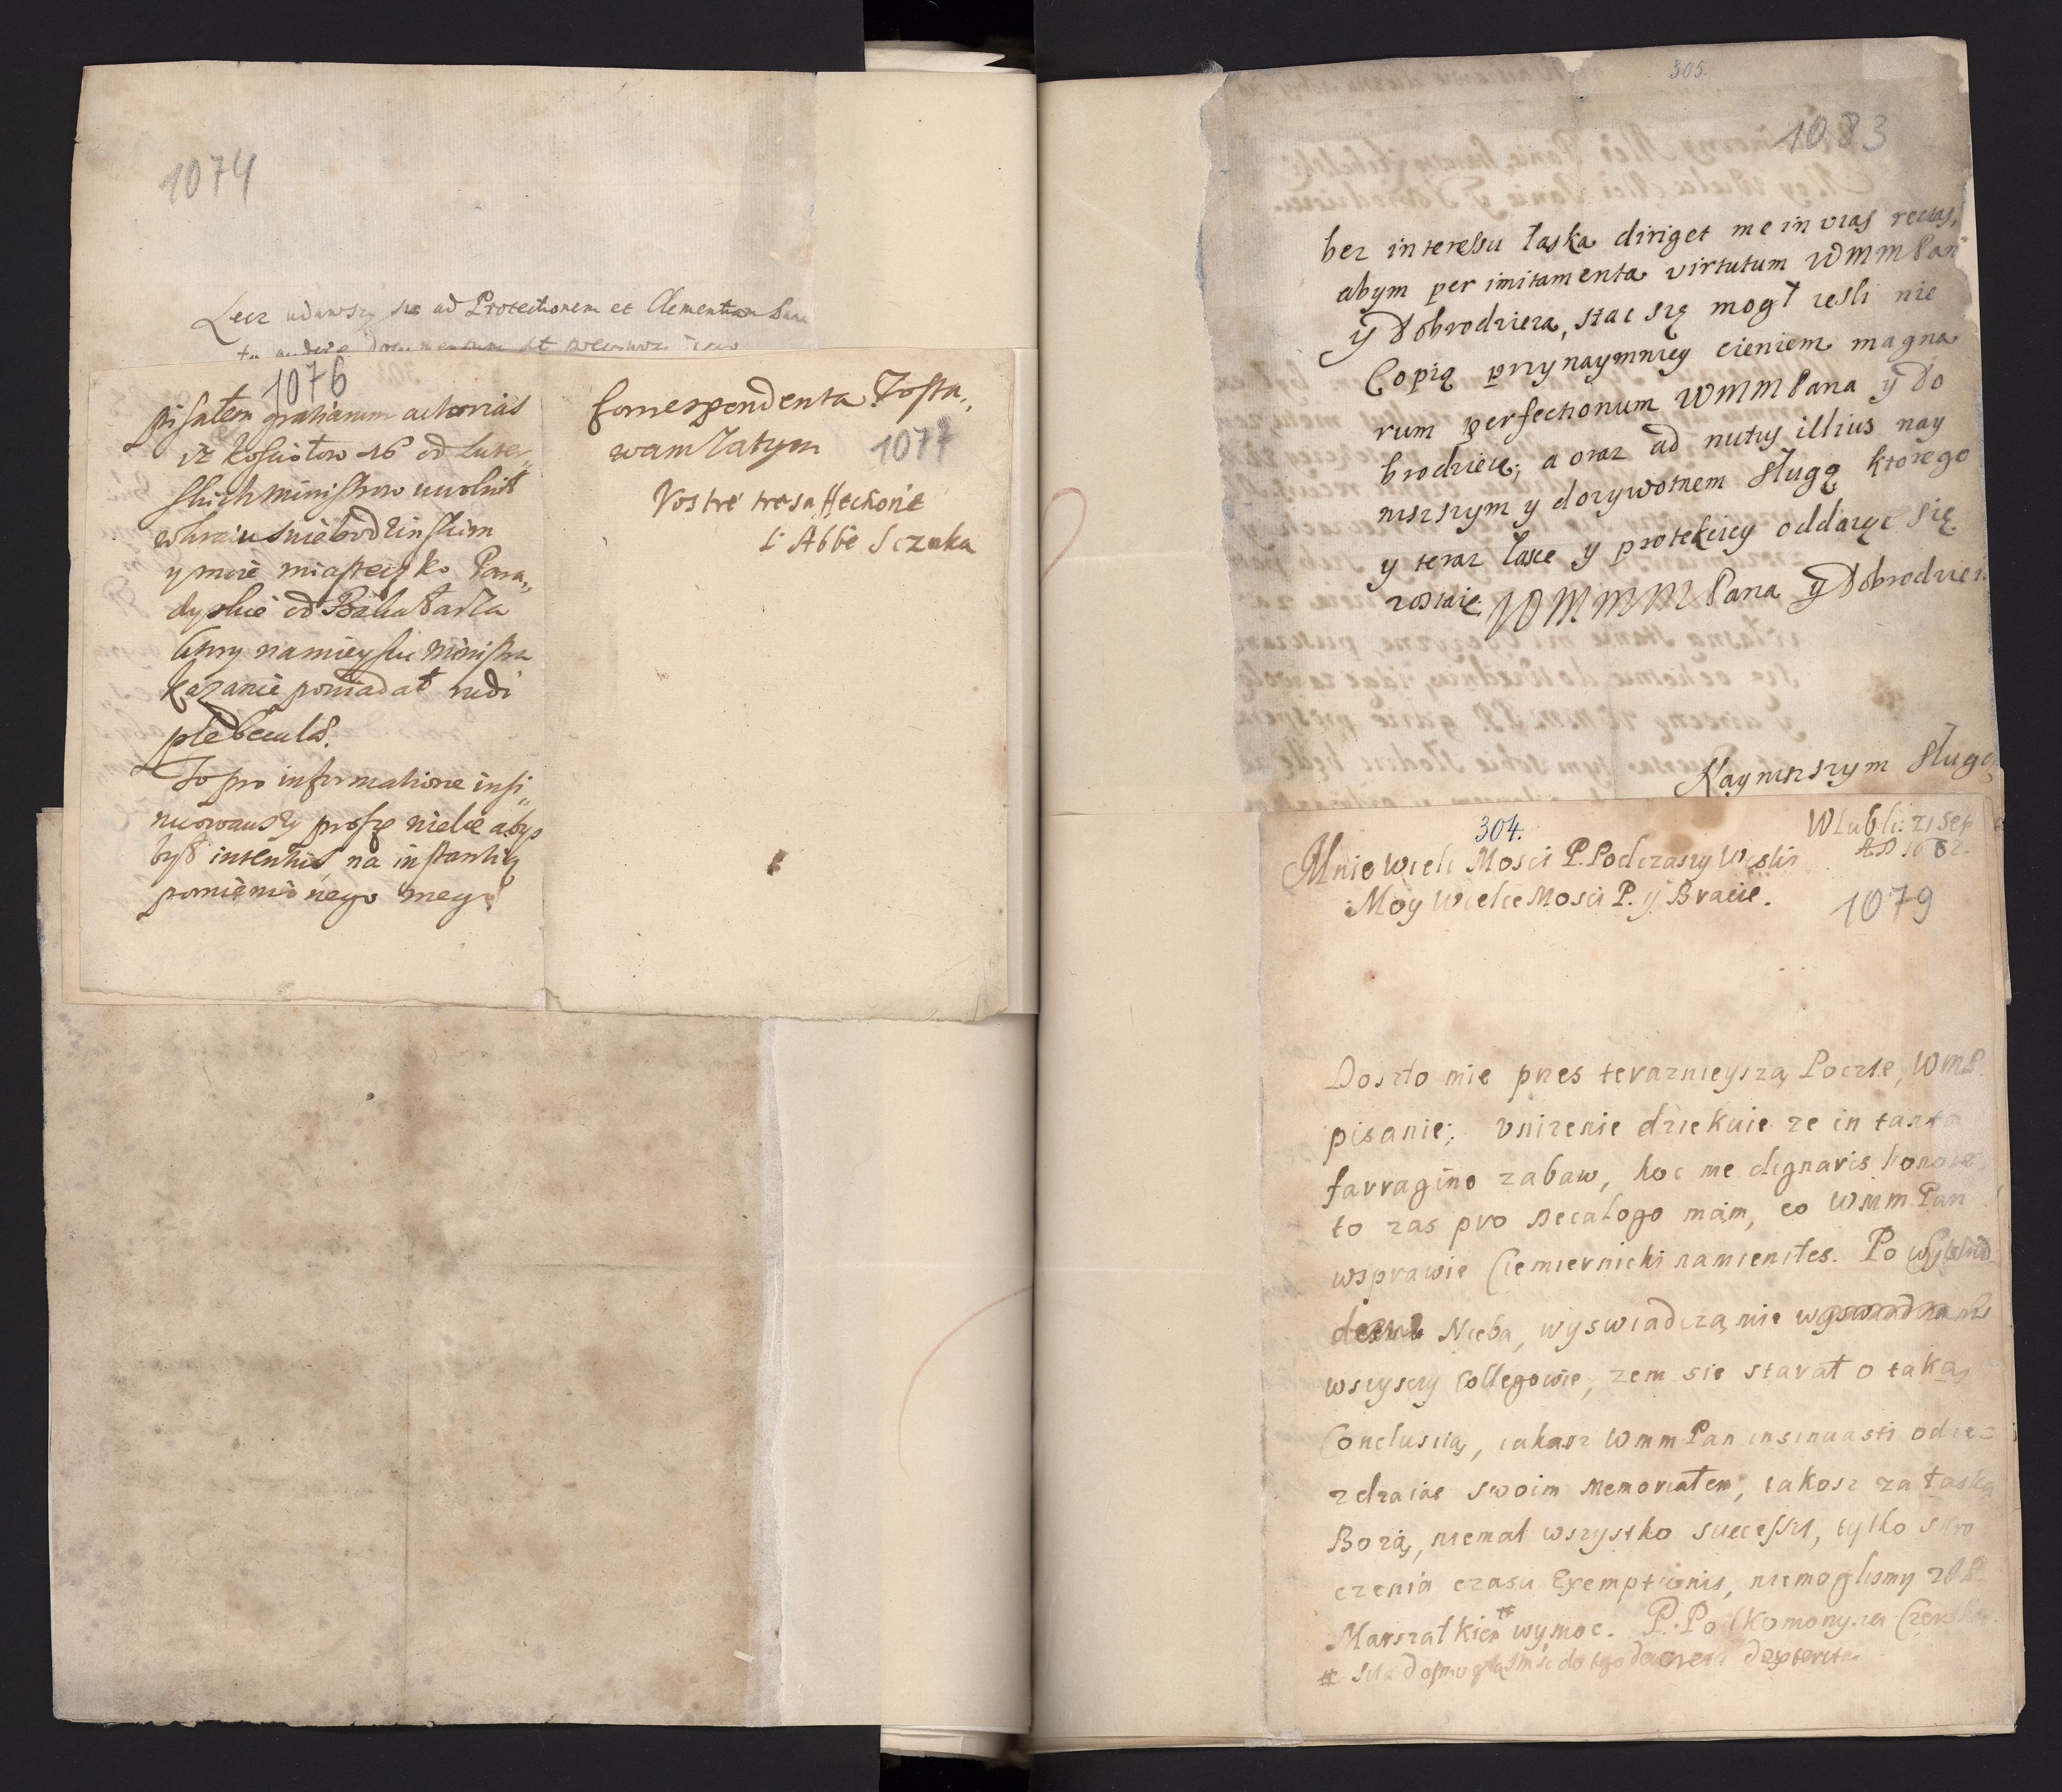 1074
Lecz udawszy się ad Protectionem et Clementiam
1076
pisałem gratiarum actorias
iż kosciołow 16 od Luter„
skich ministrow uwolnił
w kraiu swiebodzinskim
y moie miasteczko Para„
dyskie od
ktory na mieyscu ministra
kazanie powiadał rudi
plebeculae.
To pro informatione insi„
nuowawszy proszę wielce abys
był intentus na instantią
pomienionego mego
Correspondenta Zosta„
wam Zatym
1077
Vostre tresaffectioné
L'Abbé Sczuka
305.
1083
bez interessu łaska diriget me in vias rectas,
abym per imitamenta virtutum WMMPan
y Dobrodzieia, stac się mogł iesli nie
Copią przynaymniey cieniem magna
rum perfectionum WMMPana y Do
brodzieia; a oraz ad nutus illius nay
niszszym y dozywotnem sługą ktorego
y teraz łasce y protekciey oddaiąc się
zostaię WMMMPana y Dobrodzieia
Nayniższym sługą
304.
W Lubli: 21 Sep
AD 1682.
Mnie Wielc Mosci P. Podczaszy Wislis
Moy Wielce Mosci P. y Bracie.
1079
Doszło mie przes teraznieyszą Poczte, WMP.
pisanie; vnizenie dziekuie ze in tanta
farragine zabaw, hoc me dignaris honore,
to zas pro Decalogo mam, co WMM Pan
wsprawie Ciemiernicki namieniłes. Po
Nieba, wyswiadczą mie
wszyscy Collegowie, zem sie starał o taką
Conclusią, iakasz WMM Pan insinuasti odie=
zdzaiąc swoim Memoriałem, iakosz za łaską
Bozą, niemal wszystko successit, tylko skro
czenia czasu Exemptionis, niemoglismy z IP
Marszałkiem # wymoc. P. Po[d]komorzy za
# siła dopmogła